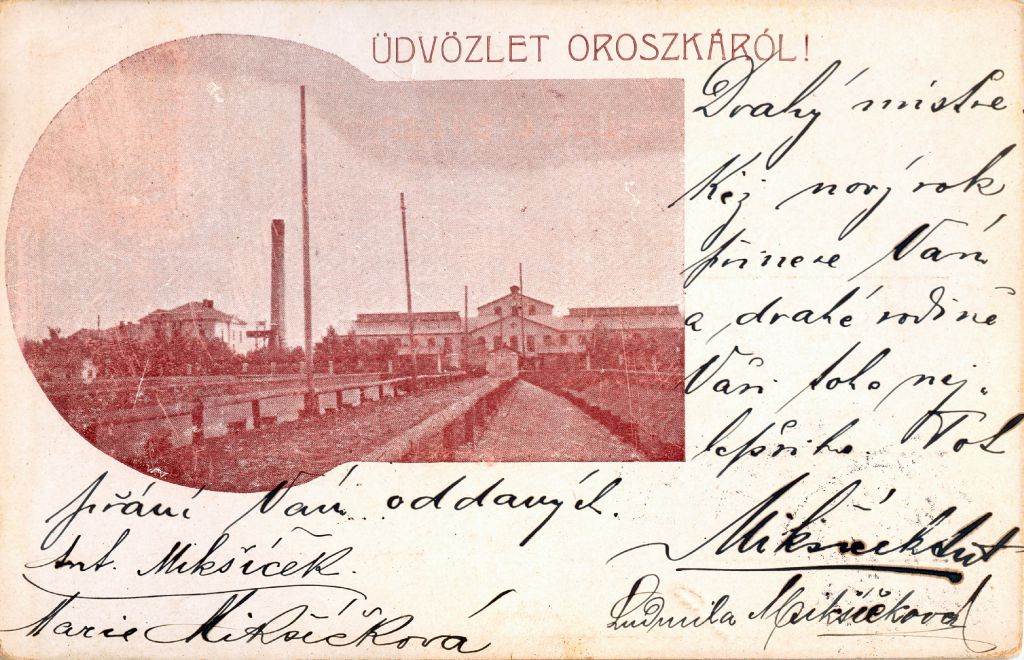 ÜDVÖZLET OROSZKÁRÓL!
Drahý mistre
Kéž nový rok
přinese Vám
a drahé rodině
Vaší toho nej-
lepšího. Toť
přání Vám oddaných.
Ant. Mikšíček.
Marie Mikšíčková
Mikšíček Ant
Ludmila Mikšíčková